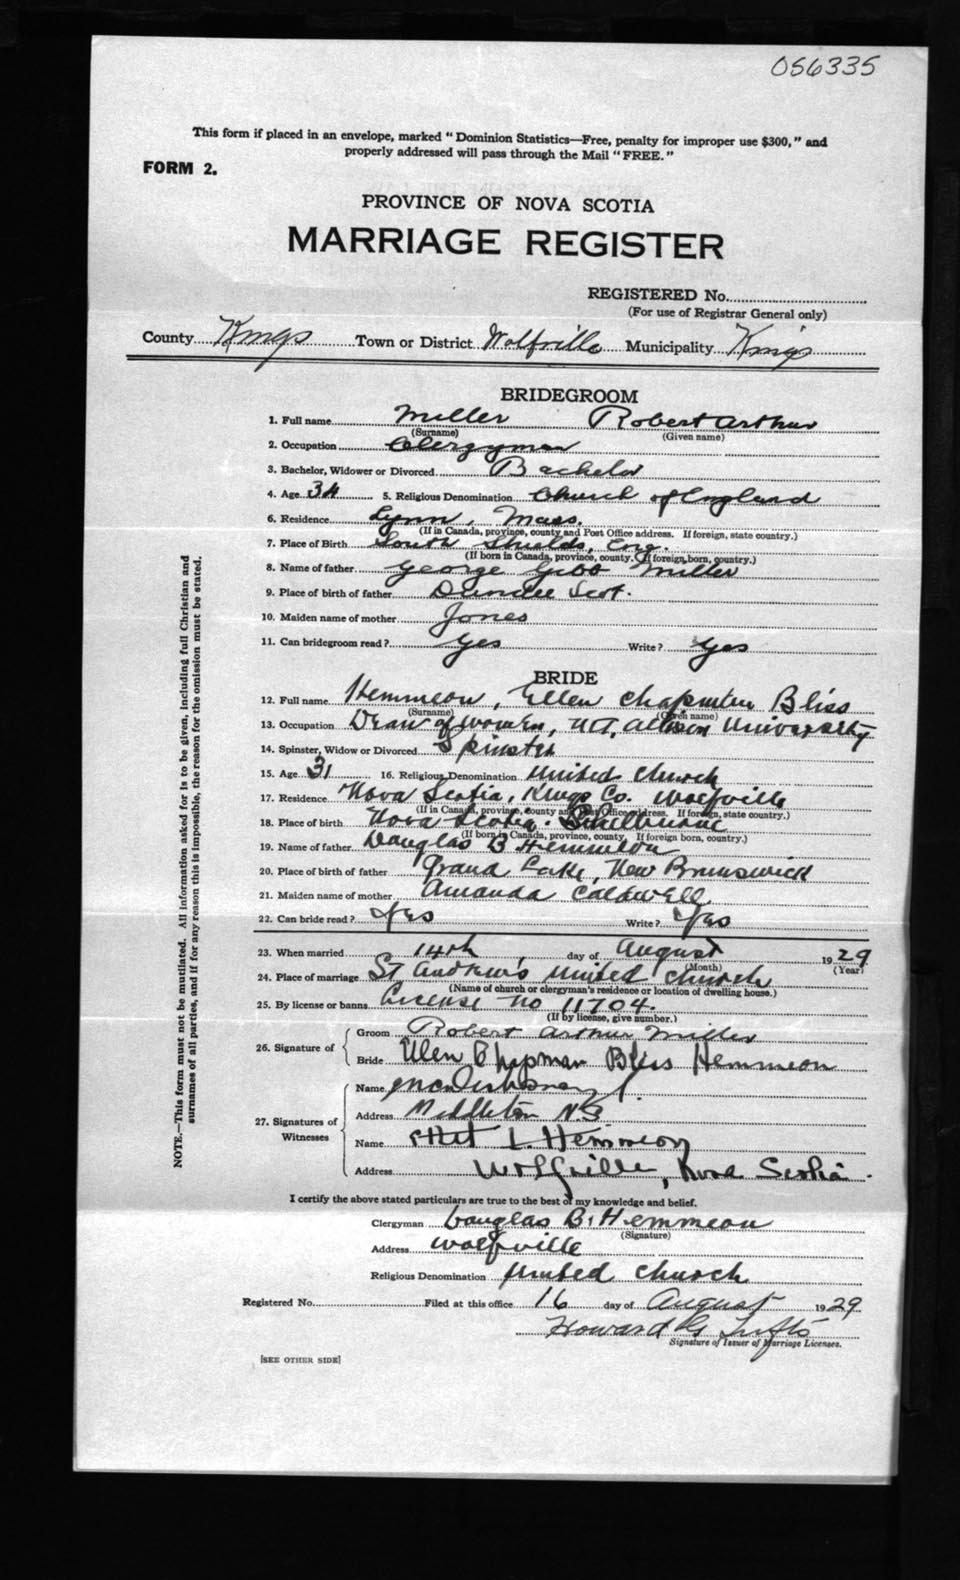 056335
This form if placed in an envelope, marked "Dominion Statistics—Free, penalty for improper use $300," and
properly addressed will pass through the Mail "FREE."
FORM 2.
PROVINCE OF NOVA SCOTIA
MARRIAGE REGISTER
REGISTERED No.
(For use of Registrar General only)
County Kings Town or District Wolfville Municipality Kings
BRIDEGROOM
1. Full name Miller Robert Arthur
(Surname) (Given name)
2. Occupation Clergyman
3. Bachelor, Widower or Divorced Bachelor
4. Age 34 5. Religious Denomination Church of England
6. Residence Lynn, Mass.
(If in Canada, province, county and Post Office address. If foreign, state country.)
7. Place of Birth South Shields, Eng.
(If born in Canada, province, county. If foreign, born, country.)
8. Name of father George Gibb Miller
9. Place of birth of father Dundee Scot.
10. Maiden name of mother Jones
11. Can bridegroom read? Yes Write? Yes
BRIDE
12. Full name Hemmeon, Ellen Chapman Bliss
(Surname) (Given name)
13. Occupation Dean of women, Mt. Allison University
14. Spinster, Widow or Divorced Spinster
15. Age 31 16. Religious Denomination United Church
17. Residence Nova Scotia, Kings Co. Wolfville
(If in Canada, province, county and Post Office address. If foreign, state country.)
18. Place of birth Nova Scotia. Shelburne
(If born in Canada, province, county. If foreign born, country.)
19. Name of father Douglas B Hemmeon
20. Place of birth of father Grand Lake, New Brunswick
21. Maiden name of mother Amanda Caldwell
22. Can bride read? Yes Write? Yes
23. When married 14th day of August 1929
(Month) (Year)
24. Place of marriage St Andrew's United Church
(Name of church or clergyman's residence or location of dwelling house.)
25. By license or banns License no 11704.
(If by license, give number.)
26. Signature of Groom Robert Arthur Miller
Bride Ellen Chapman Bliss Hemmeon
27. Signatures of Witnesses
Name
Address Middleton N.S.
Name L. Hemmeon
Address Wolfville, Nova Scotia.
I certify the above stated particulars are true to the best of my knowledge and belief.
Clergyman Douglas B. Hemmeon
(Signature)
Address Wolfville
Religious Denomination United Church
Registered No. Filed at this office 16 day of August 1929
Howard G Tufts
Signature of Issuer of Marriage Licenses.
[SEE OTHER SIDE]
NOTE.—This form must not be mutilated. All information asked for is to be given, including full Christian and
surnames of all parties, and if for any reason this is impossible, the reason for the omission must be stated.